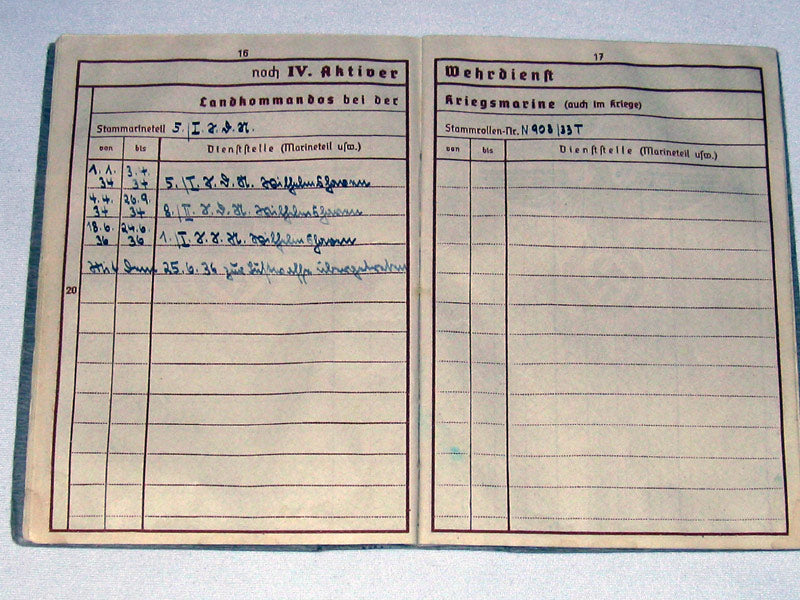 16
noch IV. Aktiver
Landkommandos bei der
Stammarineteil 5./I.
von bis Dienststelle (Marineteil usw.)
1.1. 3.4.
34 34 5./I. Wilhelmshaven
4.4. 26.9.
34 34 8./II. Wilhelmshaven
18.6. 24.6.
36 36 1./I. Wilhelmshaven
Mit dem 25.6.36 zur Luftwaffe übergetreten
20
17
Wehrdienst
Kriegsmarine (auch im Kriege)
Stammrollen-Nr. N 908/33 T
von bis Dienststelle (Marineteil usw.)